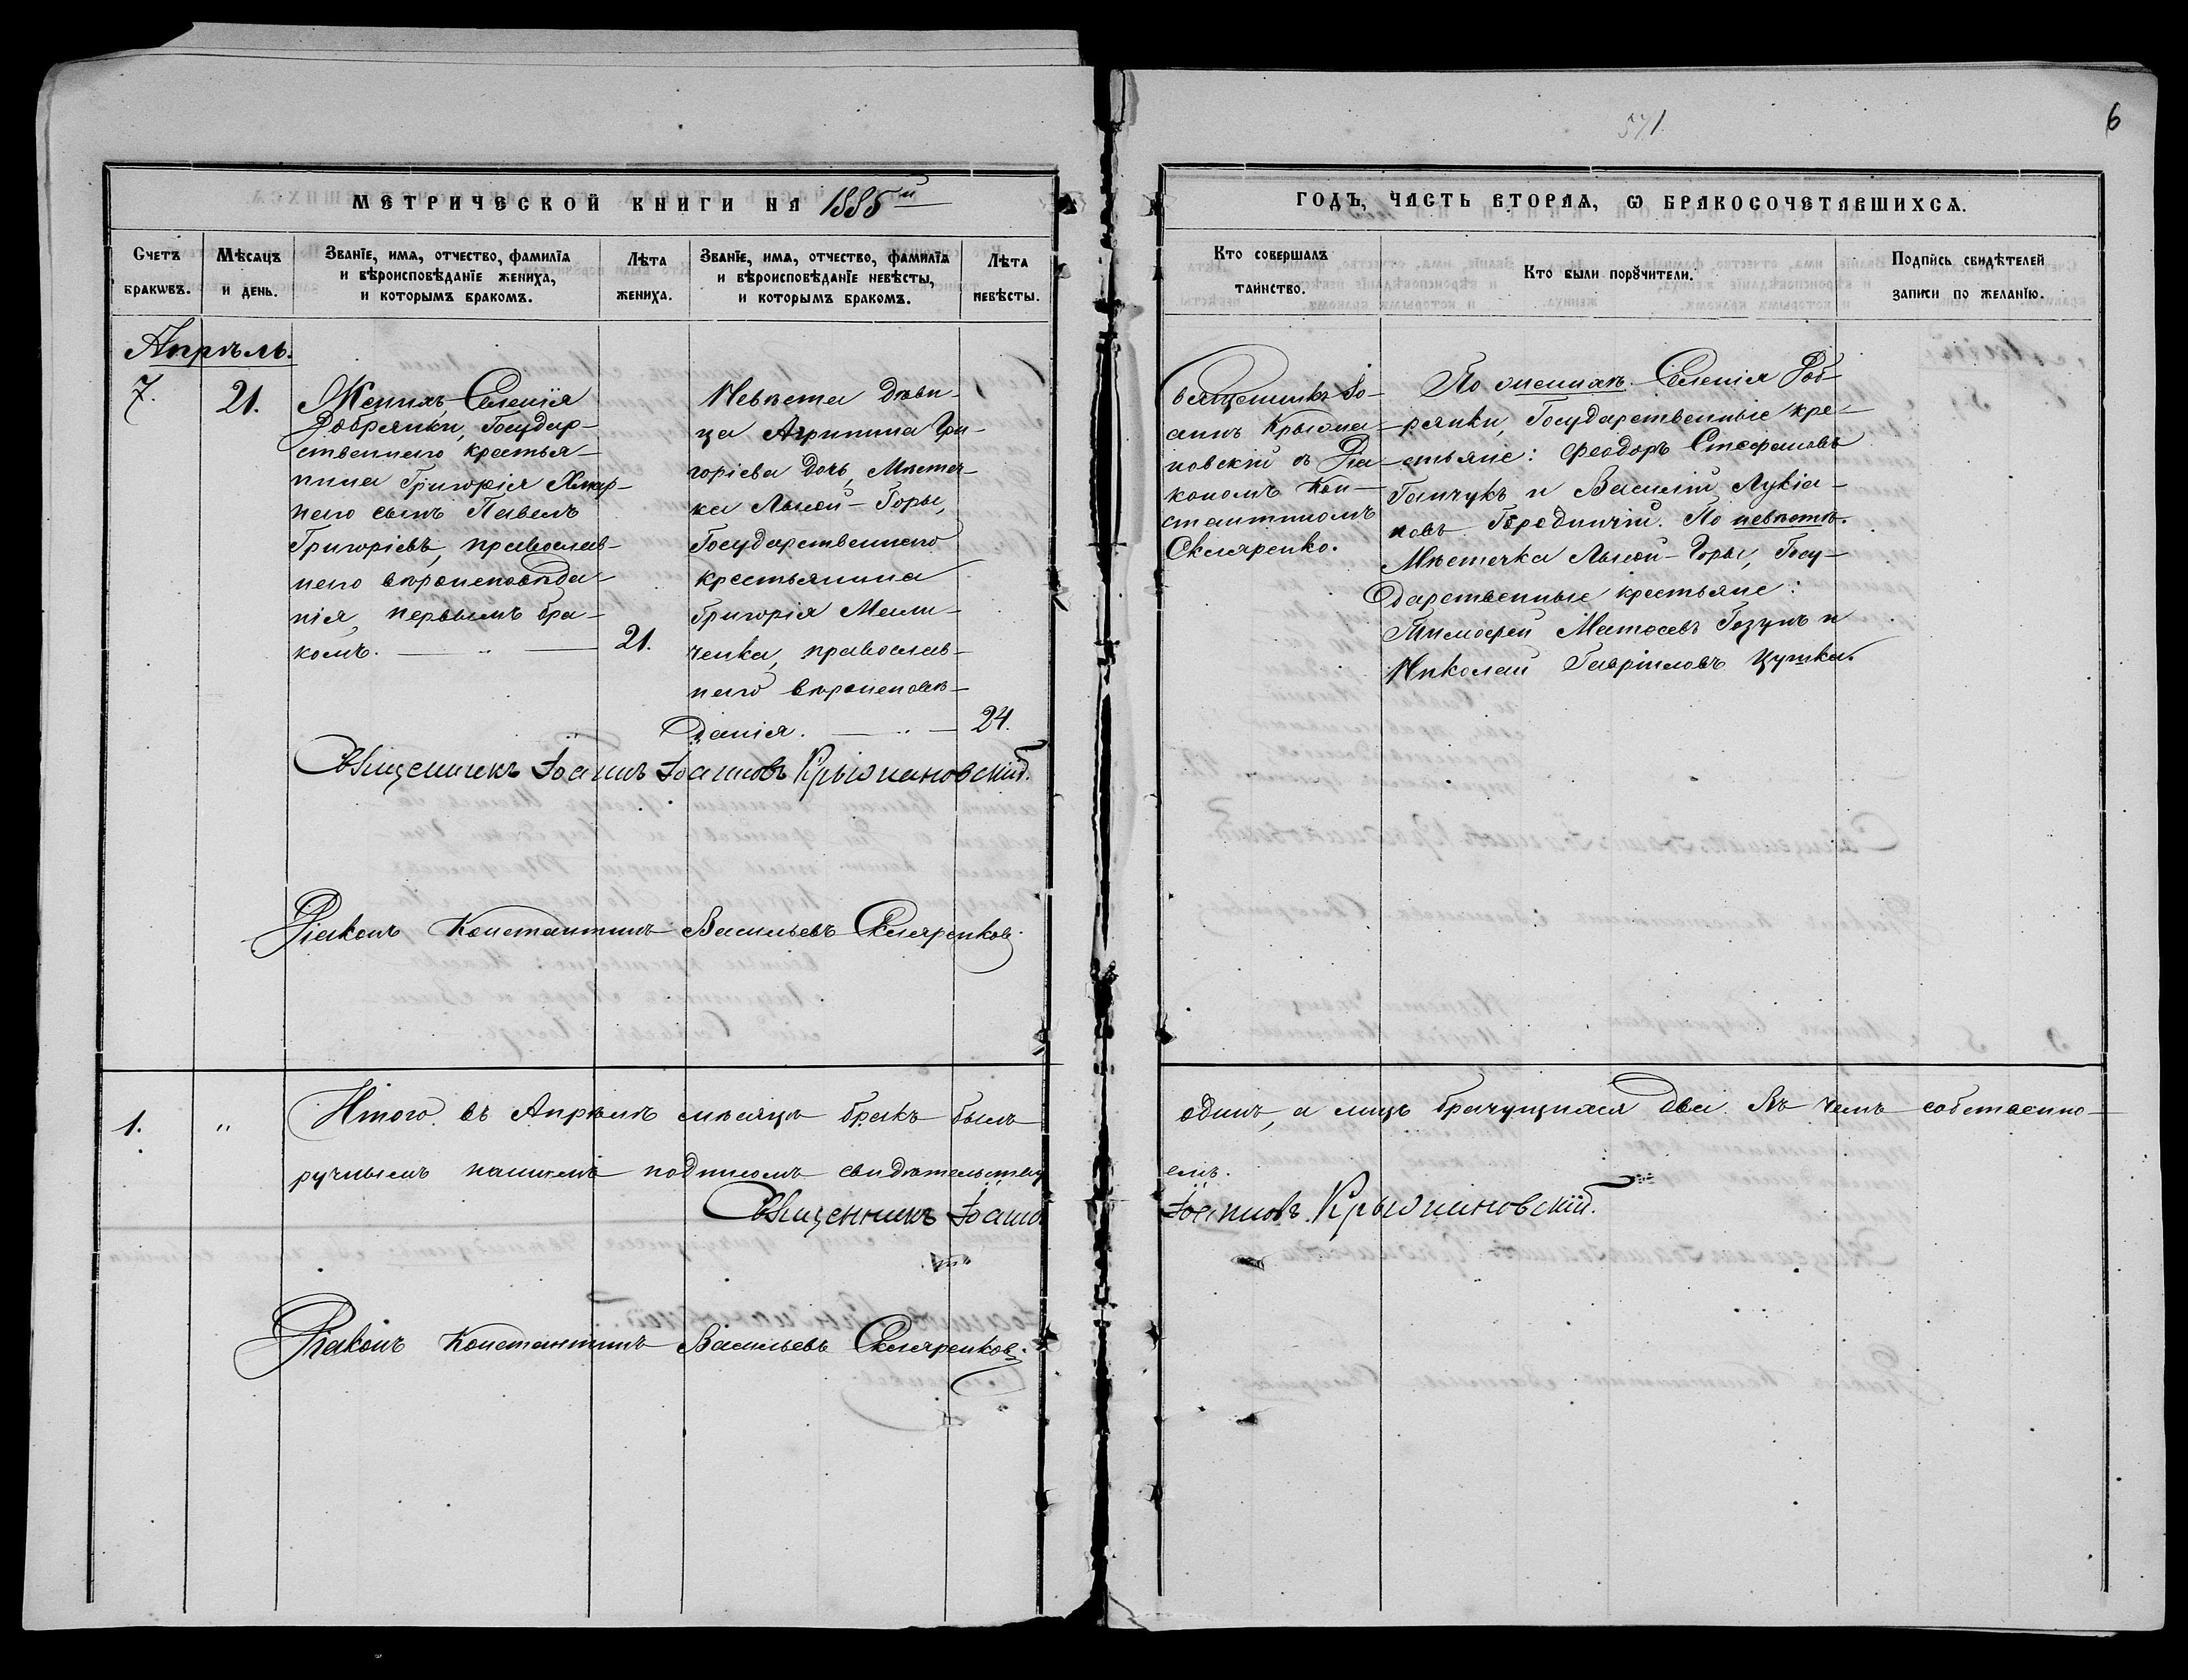 571
6
МЕТРИЧЕСКОЙ КНИГИ НА 1885й
ГОДЪ, ЧАСТЬ ВТОРАѦ, Ѡ БРАКОСОЧЕТАВШИХСѦ.
Счетъ браковъ.
Мѣсяцъ и день.
Званїе, имѧ, отчество, фамилїѧ
и вѣроисповѣданїе жениха,
и которымъ бракомъ.
Лѣта
жениха.
Званїе, имѧ, отчество, фамилїѧ
и вѣроисповѣданїе невѣсты,
и которымъ бракомъ.
Лѣта
невѣсты.
Кто совершалъ
таинство.
Кто были порꙋчители.
Подпись свидѣтелей
записи по желанїю.
Апрѣль.
7.
21.
Женихъ Селенія
Добрянки, Государ-
ственнаго крестья-
нина Григорія Хмар-
наго сынъ Павелъ
Григоріевъ, православ-
наго вѣроисповѣда-
нія, первымъ бра-
комъ. — " —
21.
Невѣста Дѣви-
ца Агрипина Гри-
горіева дочь, Мѣстеч-
ка Лысой-Горы,
Государственнаго
крестьянина
Григорія Мели-
ченка, православ-
наго вѣроисповѣ-
данія. — " —
24.
Священникъ Іо-
аннъ Крыжа-
новскій съ Діа-
кономъ Кон-
стантиномъ
Скляренко.
По женихѣ. Селенія Доб-
рянки, Государственные кре-
стьяне: Феодоръ Стефановъ
Ганчукъ и Василій Лукіа-
новъ Городничій. По невѣстѣ.
Мѣстечка Лысой-Горы, Госу-
дарственные крестьяне:
Тимофей Матфеевъ Гозунъ и
Николай Гавріиловъ Цушка.
Священникъ Іоаннъ Іоанновъ Крыжановскій.
Діаконъ Константинъ Васильевъ Скляренковъ.
1.
"
Итого въ Апрѣлѣ мѣсяцѣ бракъ былъ одинъ, а лицъ брачущихся два. Въ чемъ собственно-
ручнымъ нашимъ подписомъ свидѣтельству емъ.
Священникъ Іоаннъ Іоанновъ Крыжановскій.
Діаконъ Константинъ Васильевъ Скляренковъ.